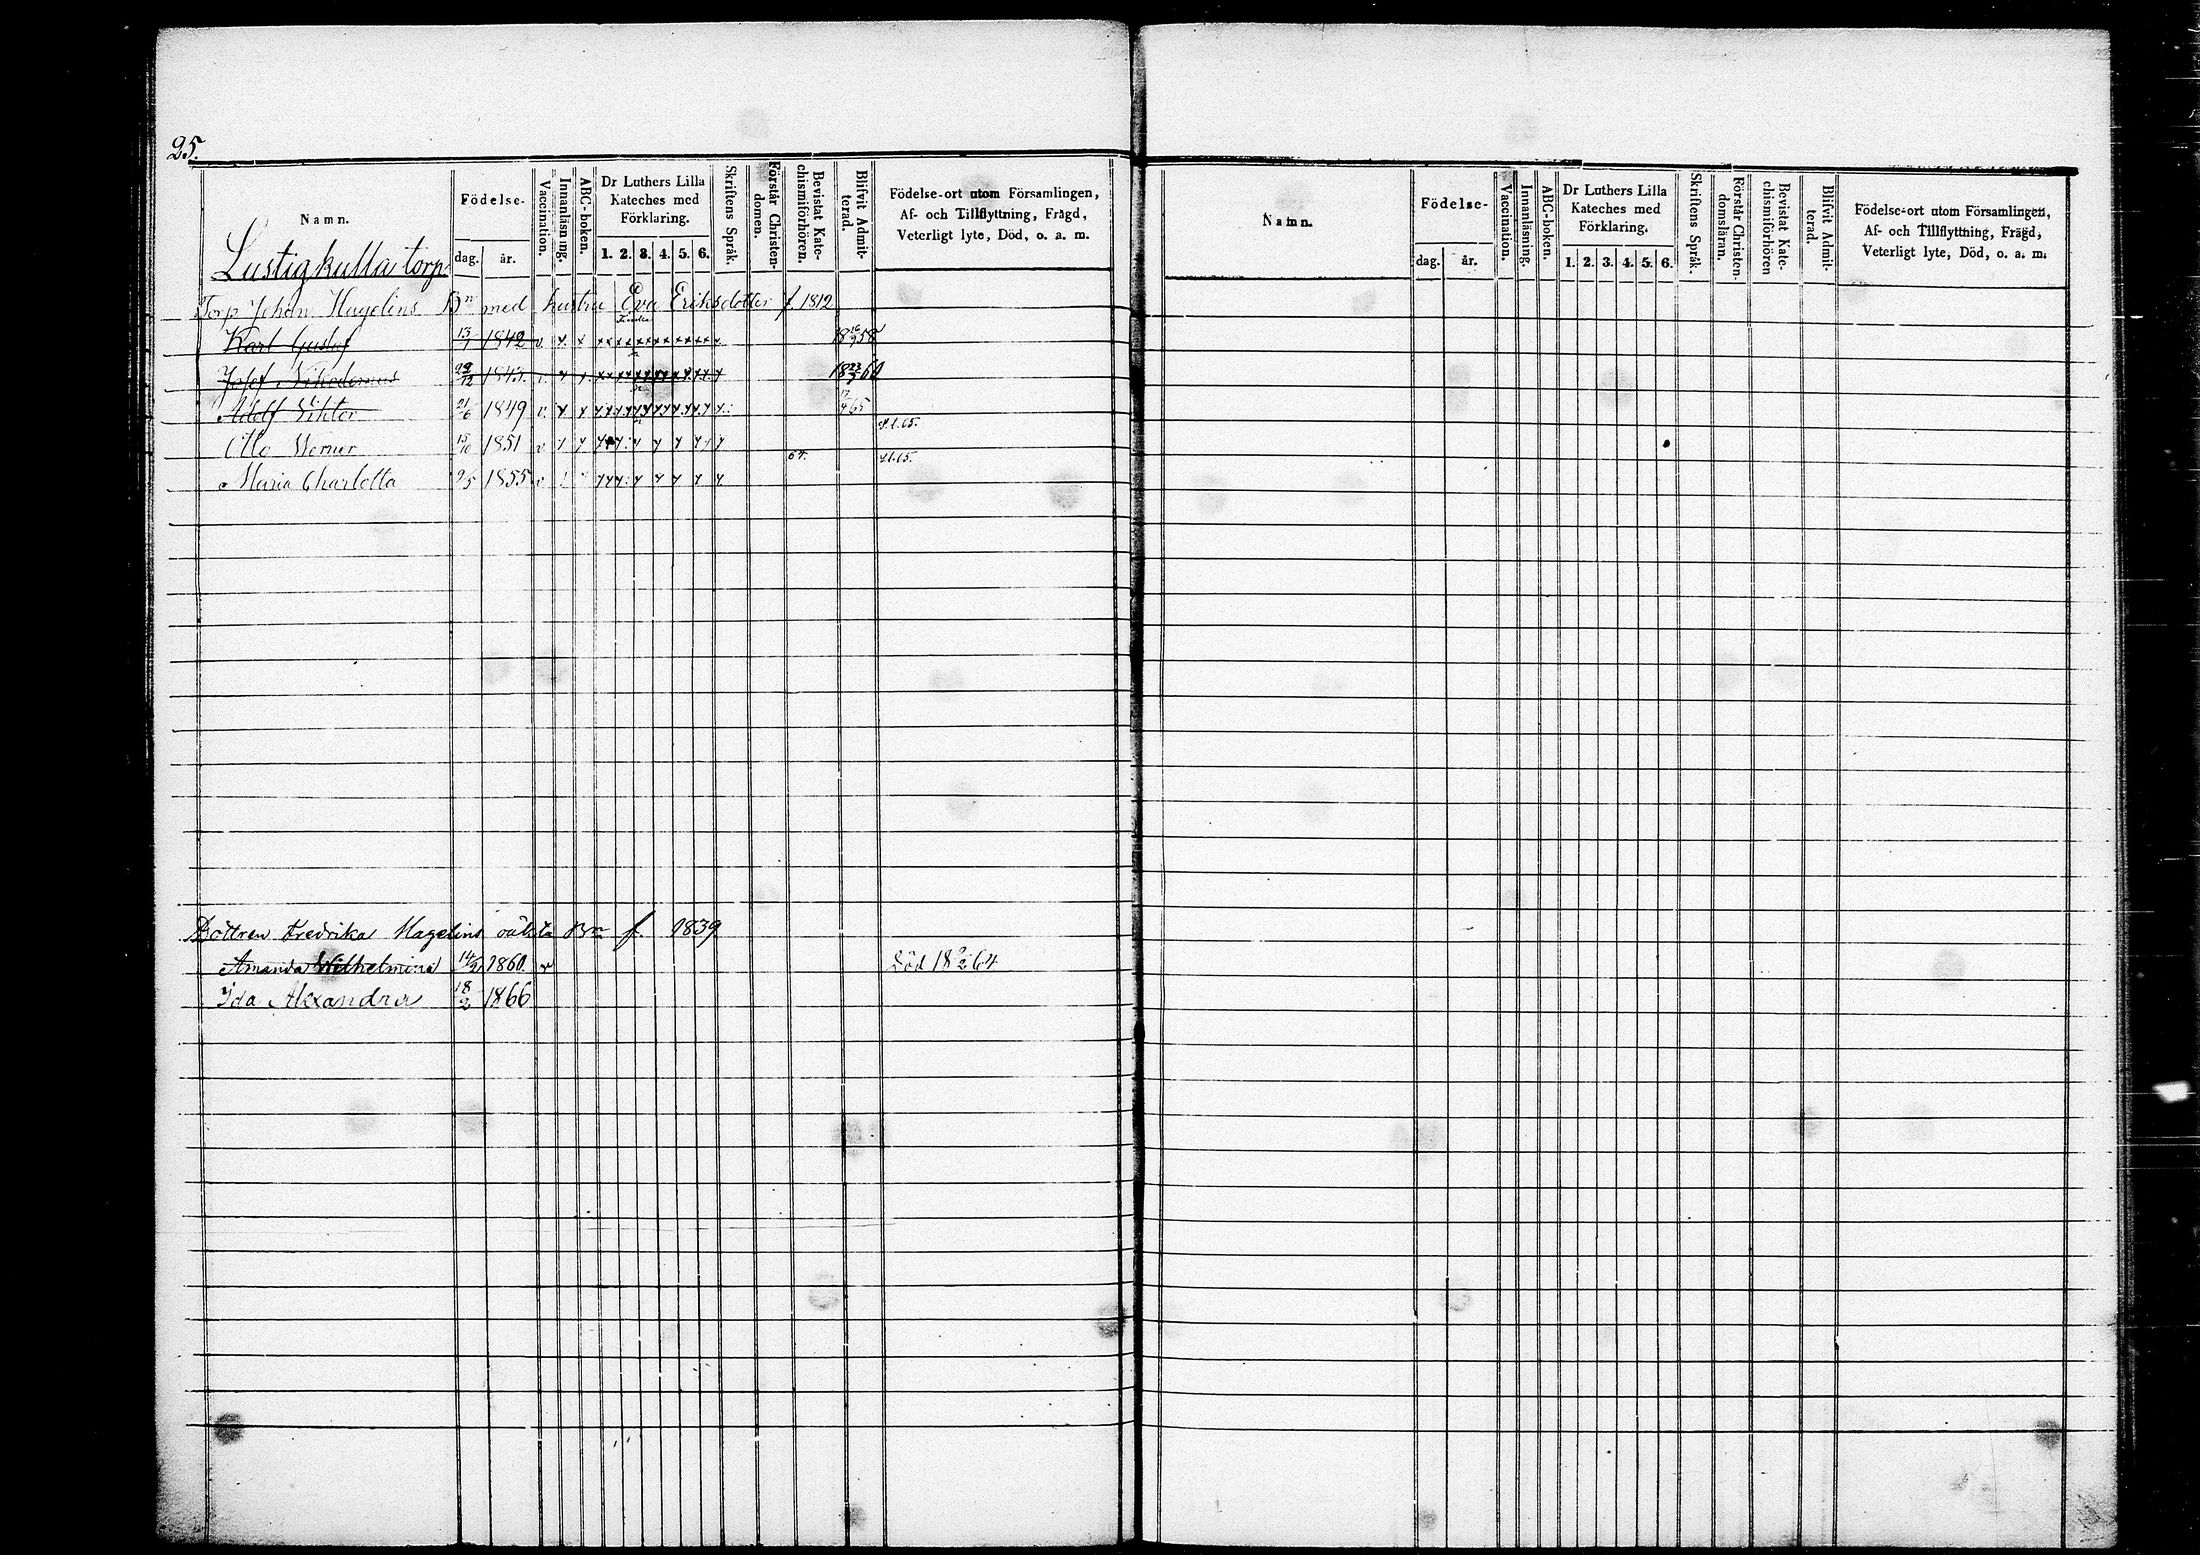 25.
Namn.
Födelse-
dag. år.
Vaccination.
Innanläsning.
ABC-boken.
Dr Luthers Lilla
Kateches med
Förklaring.
1. 2. 3. 4. 5. 6.
Skriftens Språk.
Förstår Christen-
domen.
Bevistat Kate-
chismiförhören.
Blifvit Admit-
terad.
Födelse-ort utom Församlingen,
Af- och Tillflyttning, Frägd,
Veterligt lyte, Död, o. a. m.
Lustigkulla torp
Torp Johan Hagelins Bn med hustru Eva Eriksdotter f. 1812
Karl Gustaf 13/1 1842 v. x x x x x x x x x x x x x x 18 16/9 58
Josef Nikodemus 29/12 1845 v. x x x x x x x x x x x x x x 18 22/7 60
Adolf Viktor 21/6 1849 v. x x x x x x x x x x x x x x 17/4 65
Otto Werner 15/10 1851 v x x x x x x x x x x x 65.
Maria Charlotta 9/5 1855 v x x x x x x x x 64. 65.
Dottren Fredrika Hagelins oäkta Bn f. 1839
Amanda Wilhelmina 14/2 1860. v Död 18 9/2 64
Ida Alexandra 18/2 1866
Namn.
Födelse-
dag. år.
Vaccination.
Innanläsning.
ABC-boken.
Dr Luthers Lilla
Kateches med
Förklaring.
1. 2. 3. 4. 5. 6.
Skriftens Språk.
Förstår Christen-
domsläran.
Bevistat Kate-
chismiförhören
Blifvit Admit-
terad.
Födelse-ort utom Församlingen,
Af- och Tillflyttning, Frägd,
Veterligt lyte, Död, o. a. m.